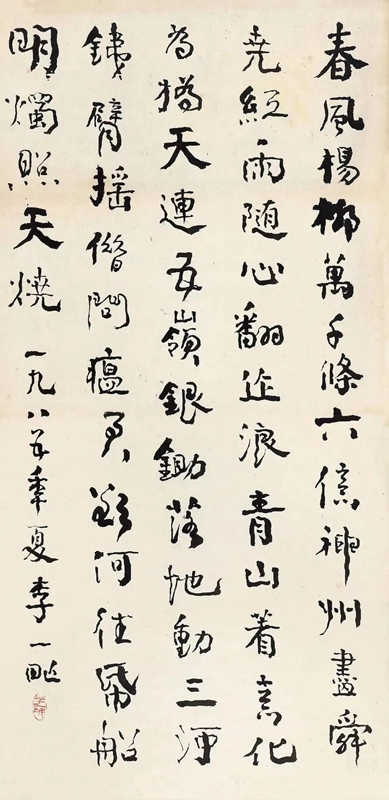 春風楊柳萬千條六億神州盡舜
堯紅雨随心翻作浪青山着意化
為橋天連五嶺銀鋤落地動三河
銕臂摇借問瘟君欲何往帋船
明燭照天燒 一九八年夏李一氓